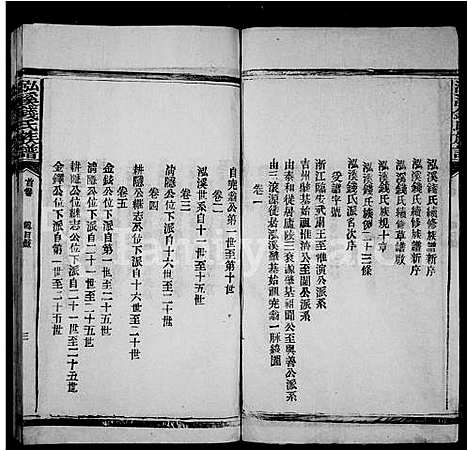 泓溪錢氏續修族譜新序
泓溪錢氏續修族譜新序
泓溪錢氏族規十章
泓溪錢氏族便二十三條
泓溪錢氏派名次序
受譜字號
浙江臨安武肅王至推演公派系
吉州肇基始祖推演公至闔公派系
由泰和徙居廬陵三袁謀肇基祖聞公至興善公派系
由三溪源徙居泓溪肇基始祖完翁一脉總圖
卷一
自完翁公第一世至第十世
卷二
泓溪世系自十一世至十五世
卷三
清隱公位下派自十六世至二十世
卷四
耕隱公繼志公位下派自十六世至二十世
清隱公位下派自二十一世至二十五世
卷五
金鉞公位下派自二十一世至二十五世
耕隱公繼志公位下派自二十一世至二十五世
金鐸公位下派自二十一世至二十五世
泓溪錢氏族譜
首卷
三